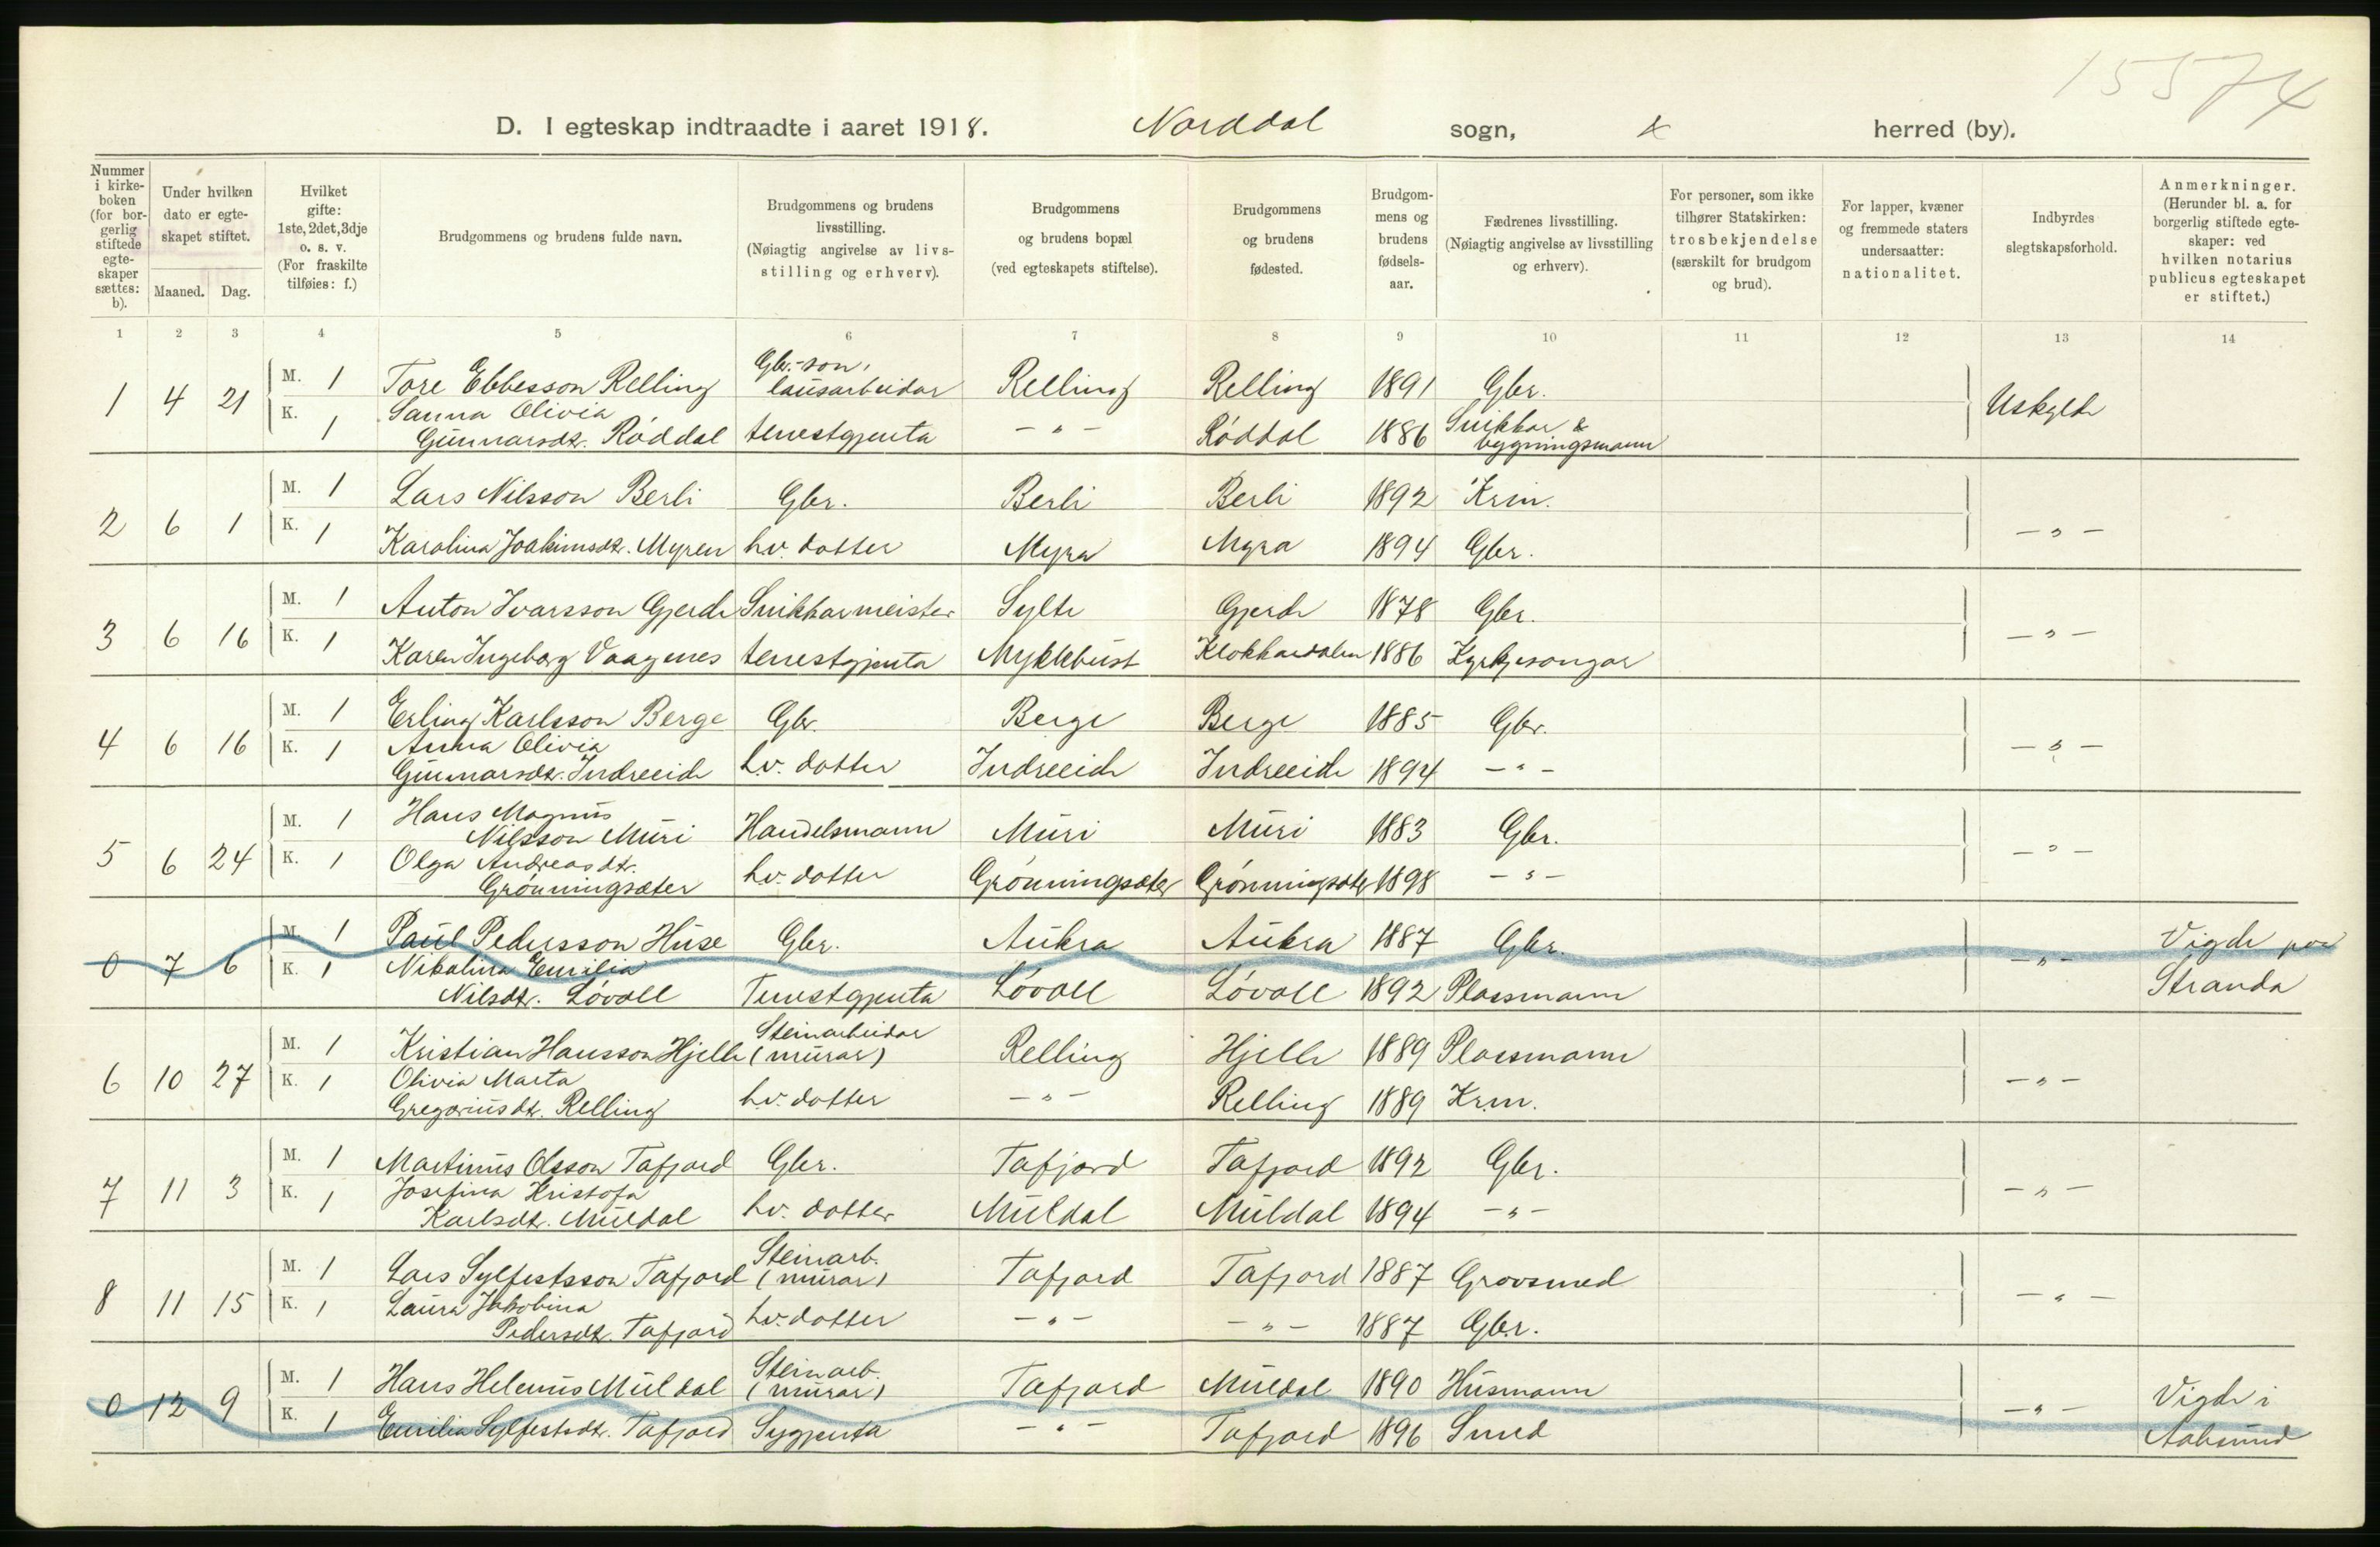 15574
D. I egteskap indtraadte i aaret 1918. Norddal sogn, herred (by).
Nummer i kirke-boken (for bor-gerlig stiftede egte-skaper sættes: b).
Under hvilken dato er egte-skapet stiftet.
Maaned. Dag.
Hvilket gifte: 1ste, 2det, 3dje o. s. v. (For fraskilte tilføies: f.)
Brudgommens og brudens fulde navn.
Brudgommens og brudens livsstilling. (Nøiagtig angivelse av livs-stilling og erhverv).
Brudgommens og brudens bopæl (ved egteskapets stiftelse).
Brudgommens og brudens fødested.
Brudgom-mens og brudens fødsels-aar.
Fædrenes livsstilling. (Nøiagtig angivelse av livsstilling og erhverv).
For personer, som ikke tilhører Statskirken: trosbekjendelse (særskilt for brudgom og brud).
For lapper, kvæner og fremmede staters undersaatter: nationalitet.
Indbyrdes slegtskapsforhold.
Anmerkninger. (Herunder bl. a. for borgerlig stiftede egte-skaper: ved hvilken notarius publicus egteskapet er stiftet.)
1 2 3 4 5 6 7 8 9 10 11 12 13 14
1 4 21 M. 1 Tore Ebbesson Relling Gbr.-son, lausarbeidar Relling Relling 1891 Gbr. Uskylde
K. 1 Sanna Olivia Gunnarsdtr. Røddal tenestgjenta - " - Røddal 1886 Snikkar & bygningsmann
2 6 1 M. 1 Lars Nilsson Berli Gbr. Berli Berli 1892 Krm. - " -
K. 1 Karolina Joakimsdtr. Myren hv. dotter Myra Myra 1894 Gbr.
3 6 16 M. 1 Anton Ivarsson Gjerde Snikkarmeister Sylte Gjerde 1878 Gbr. - " -
K. 1 Karen Ingeborg Vaagenes tenestgjenta Myklebust Klokkardalen 1886 Kyrkjesongar
4 6 16 M. 1 Erling Karlsson Berge Gbr. Berge Berge 1885 Gbr. - " -
K. 1 Anna Olivia Gunnarsdtr. Indreeide hv. dotter Indreeide Indreeide 1894 - " -
5 6 24 M. 1 Hans Magnus Nilsson Muri Handelsmann Muri Muri 1883 Gbr. - " -
K. 1 Olga Andreasdtr. Grønningsæter hv. dotter Grønningsæter Grønningsæter 1898 - " -
0 7 6 M. 1 Paul Pedersson Huse Gbr. Aukra Aukra 1887 Gbr. - " - Vigde paa Stranda
K. 1 Nikolina Emilia Nilsdtr. Løvoll Tenestgjenta Løvoll Løvoll 1892 Plassmann
6 10 27 M. 1 Kristian Hansson Hjelle Steinarbeidar (murar) Relling Hjelle 1889 Plassmann - " -
K. 1 Olivia Marta Gregoriusdtr. Relling hv. dotter - " - Relling 1889 Krm.
7 11 3 M. 1 Martinus Olsson Tafjord Gbr. Tafjord Tafjord 1892 Gbr. - " -
K. 1 Josefina Kristofa Karlsdtr. Muldal hv. dotter Muldal Muldal 1894 - " -
8 11 15 M. 1 Lars Sylfestsson Tafjord Steinarb. (murar) Tafjord Tafjord 1887 Grovsmed - " -
K. 1 Laura Jakobina Pedersdtr. Tafjord hv. dotter - " - - " - 1887 Gbr.
0 12 9 M. 1 Hans Helenus Muldal Steinarb. (murar) Tafjord Muldal 1890 Husmann - " - Vigde i Aalesund
K. 1 Emilia Sylfestsdtr. Tafjord Sygjenta - " - Tafjord 1896 Smed